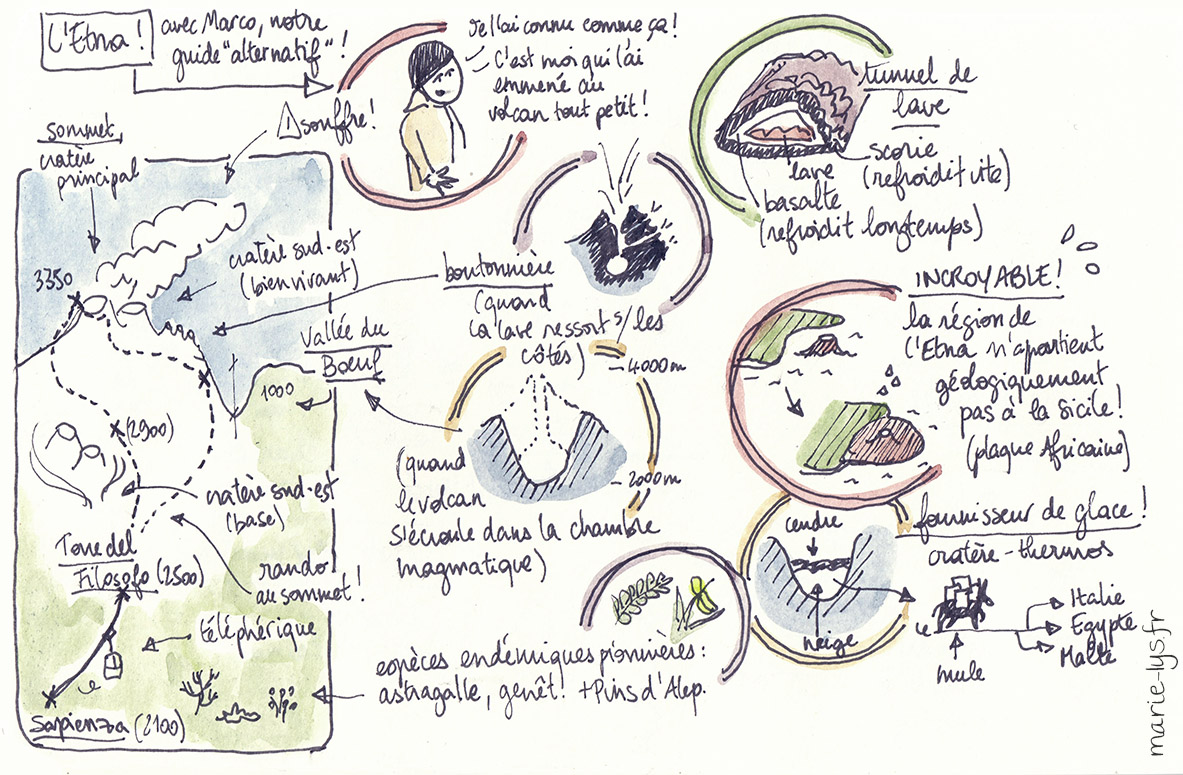 L'Etna !
avec Marco, notre
guide "alternatif" !
Je l'ai connu comme ça !
C'est moi qui l'ai
emmené au
volcan tout petit !
tunnel de
lave
scorie
(refroidit vite)
lave
basalte
(refroidit longtemps)
sommet,
cratère
principal
souffre !
3350
cratère sud-est
(bien vivant)
boutonnière
(quand
la lave ressort s/ les
côtés)
Vallée du
Bœuf
1000
4000m
2000m
(quand
le volcan
s'écroule dans la chambre
magmatique)
INCROYABLE !
la région de
l'Etna n'appartient
géologiquement
pas à la Sicile !
(plaque Africaine)
(2900)
cratère sud-est
(base)
Torre del
Filosofo (2500)
rando
au sommet !
téléphérique
Sapienza (2100)
espèces endémiques pionnières :
astragalle, genêt ! + Pins d'Alep.
fournisseur de glace !
cratère-thermos
cendre
neige
mule
Italie
Egypte
Malte
marie-lys.fr